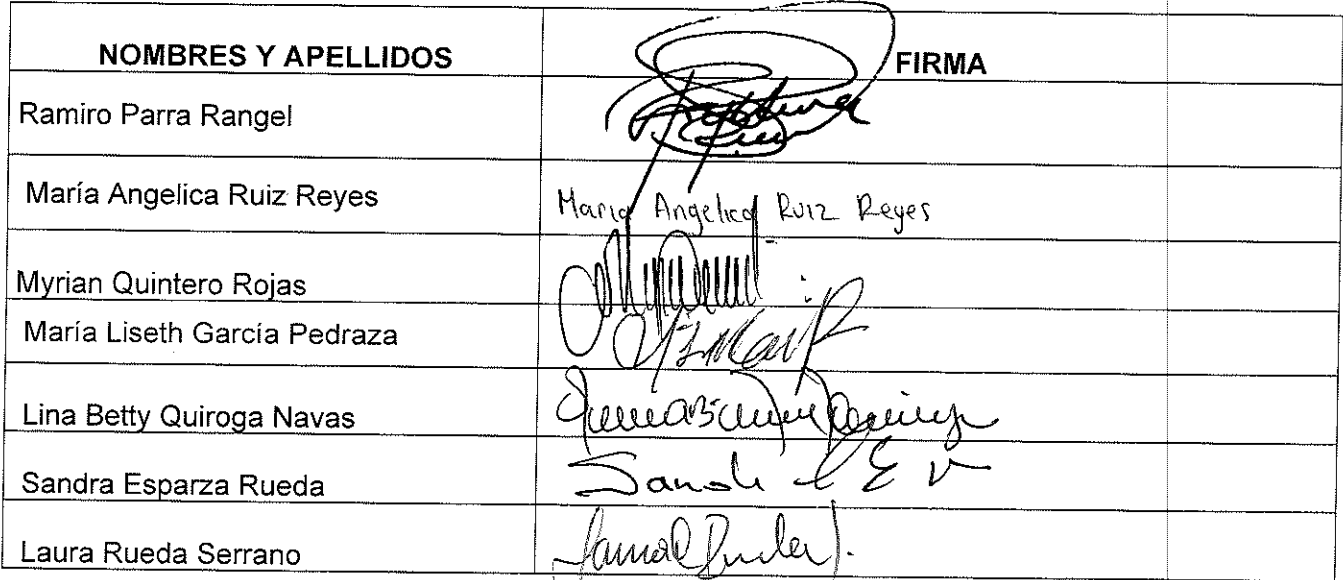 NOMBRES Y APELLIDOS FIRMA
Ramiro Parra Rangel
María Angelica Ruiz Reyes Maria Angelica Ruiz Reyes
Myrian Quintero Rojas
María Liseth García Pedraza
Lina Betty Quiroga Navas
Sandra Esparza Rueda
Laura Rueda Serrano